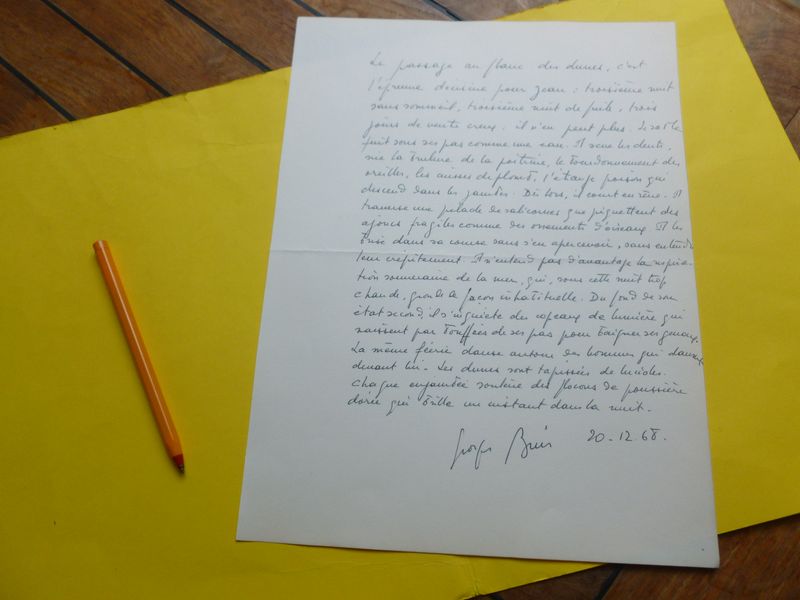 Le passage au flanc des dunes, c'est
l'épreuve décisive pour Jean : troisième nuit
sans sommeil, troisième nuit de fuite, trois
jours de ventre creux. Il n'en peut plus. Le sable
fuit sous ses pas comme une eau. Il serre les dents,
nie la brûlure de la poitrine, le bourdonnement des
oreilles, les cuisses de plomb, l'étrange poison qui
descend dans les jambes. Dès lors, il court en rêve. Il
traverse une pelade de salicornes que piquettent des
ajoncs fragiles comme des ossements d'oiseaux. Il les
brise dans sa course sans s'en apercevoir, sans entendre
leur crépitement. Il n'entend pas d'avantage la respira-
tion souterraine de la mer, qui, sous cette nuit trop
chaude, gronde de façon inhabituelle. Du fond de son
état second, il s'inquiète des copeaux de lumière qui
naissent par bouffées de ses pas pour baigner ses genoux.
La même féérie danse autour des hommes qui
devant lui. Les dunes sont tapissées de lucioles.
Chaque enjambée soulève des flocons de poussière
dorée qui brille un instant dans la nuit.
Georges 20.12.68.